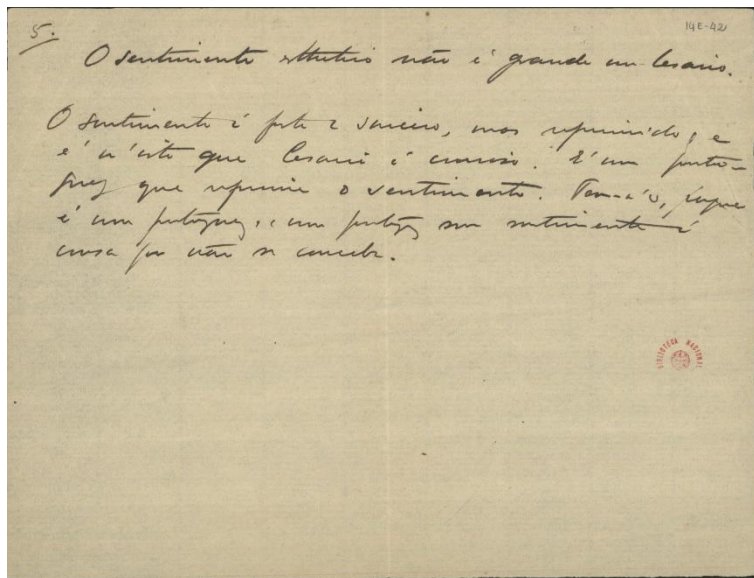 5.
14E-42
O sentimento esthetico não é grande em Cesario.
O sentimento é forte e sincero, mas reprimido; e
é n'isto que Cesario é curioso. É um portu-
guez que reprime o sentimento. Tem-n'o, porque
é um portuguez, e um portuguez sem sentimento é
cousa que não se concebe.
BIBLIOTECA NACIONAL